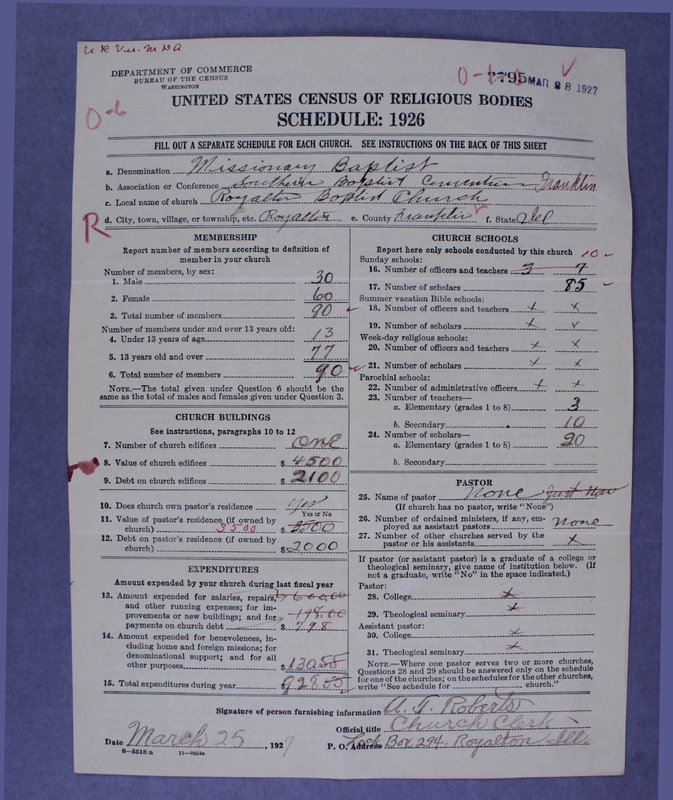 DEPARTMENT OF COMMERCE
BUREAU OF THE CENSUS
WASHINGTON
MAR 28 1927
O-6
UNITED STATES CENSUS OF RELIGIOUS BODIES
SCHEDULE: 1926
FILL OUT A SEPARATE SCHEDULE FOR EACH CHURCH. SEE INSTRUCTIONS ON THE BACK OF THIS SHEET
a. Denomination Missionary Baptist
b. Association or Conference Southern Baptist Convention Franklin
c. Local name of church Royalton Baptist Church
R
d. City, town, village, or township, etc. Royalton e. County Franklin f. State Ill
MEMBERSHIP
Report number of members according to definition of
member in your church
Number of members, by sex:
1. Male 30
2. Female 60
3. Total number of members 90
Number of members under and over 13 years old:
4. Under 13 years of age 13
5. 13 years old and over 77
6. Total number of members 90
NOTE.—The total given under Question 6 should be the
same as the total of males and females given under Question 3.
CHURCH BUILDINGS
See instructions, paragraphs 10 to 12
7. Number of church edifices one
8. Value of church edifices $ 4500
9. Debt on church edifices $ 2100
10. Does church own pastor's residence yes
Yes or No
11. Value of pastor's residence (if owned by
church) 3500 $ 3500
12. Debt on pastor's residence (if owned by
church) $ 2000
EXPENDITURES
Amount expended by your church during last fiscal year
13. Amount expended for salaries, repairs, $ 600.00
and other running expenses; for im-
provements or new buildings; and for 198.00
payments on church debt $ 798
14. Amount expended for benevolences, in-
cluding home and foreign missions; for
denominational support; and for all
other purposes $ 130.55
15. Total expenditures during year $ 928.55
CHURCH SCHOOLS
Report here only schools conducted by this church 10
Sunday schools:
16. Number of officers and teachers 3 7
17. Number of scholars 85
Summer vacation Bible schools:
18. Number of officers and teachers x x
19. Number of scholars x
Week-day religious schools:
20. Number of officers and teachers x x
21. Number of scholars x x
Parochial schools:
22. Number of administrative officers x x
23. Number of teachers—
a. Elementary (grades 1 to 8) 3
b. Secondary 10
24. Number of scholars—
a. Elementary (grades 1 to 8) 20
b. Secondary
PASTOR
25. Name of pastor None Just Now
(If church has no pastor, write "None")
26. Number of ordained ministers, if any, em-
ployed as assistant pastors none
27. Number of other churches served by the
pastor or his assistants x
If pastor (or assistant pastor) is a graduate of a college or
theological seminary, give name of institution below. (If
not a graduate, write "No" in the space indicated.)
Pastor:
28. College x
29. Theological seminary x
Assistant pastor:
30. College x
31. Theological seminary x
NOTE.—Where one pastor serves two or more churches,
Questions 28 and 29 should be answered only on the schedule
for one of the churches; on the schedules for the other churches,
write "See schedule for church."
Signature of person furnishing information A. T. Roberts
Official title Church Clerk
Date March 25, 1927 P. O. Address Lock Box 294. Royalton Ill.
8—5518 a